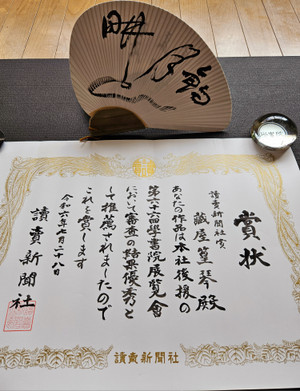 賞状
讀賣新聞社賞
蔵屋篁琴殿
あなたの作品は本社後援の
第六十六回學書院展覧会
において審査の結果優秀と
して推薦されましたので
これを賞します
令和六年七月二十八日
讀賣新聞社
讀賣新聞社